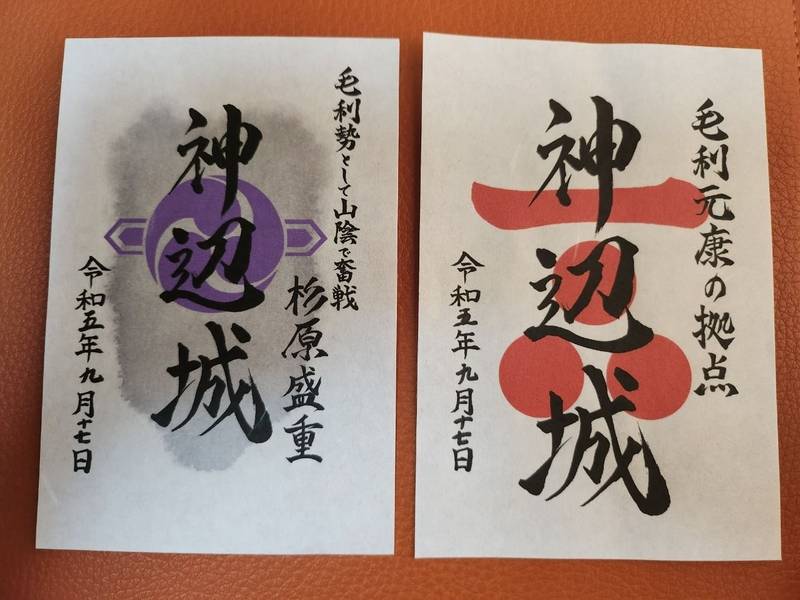 毛利勢として山陰で奮戦
杉原盛重
神辺城
令和五年九月十七日
毛利元康の拠点
神辺城
令和五年九月十七日